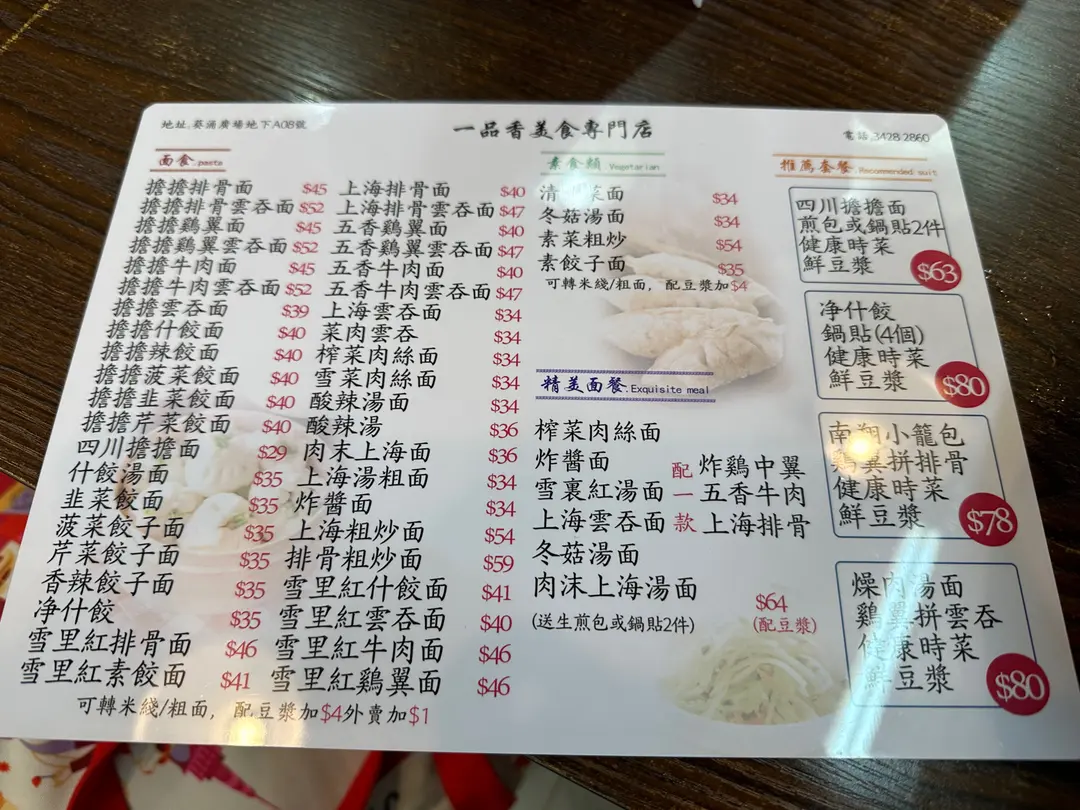 地址:葵涌廣場地下A08號
一品香美食專門店
電話:3428 2860
面食.pasta
擔擔排骨面 $45
擔擔排骨雲吞面 $52
擔擔鷄翼面 $45
擔擔鷄翼雲吞面 $52
擔擔牛肉面 $45
擔擔牛肉雲吞面 $52
擔擔雲吞面 $39
擔擔什餃面 $40
擔擔辣餃面 $40
擔擔菠菜餃面 $40
擔擔韭菜餃面 $40
擔擔芹菜餃面 $40
四川擔擔面 $29
什餃湯面 $35
韭菜餃面 $35
菠菜餃子面 $35
芹菜餃子面 $35
香辣餃子面 $35
净什餃 $35
雪里紅排骨面 $46
雪里紅素餃面 $41
上海排骨面 $40
上海排骨雲吞面 $47
五香鷄翼面 $40
五香鷄翼雲吞面 $47
五香牛肉面 $40
五香牛肉雲吞面 $47
上海雲吞面 $34
菜肉雲吞 $34
榨菜肉絲面 $34
雪菜肉絲面 $34
酸辣湯面 $34
酸辣湯 $36
肉末上海面 $36
上海湯粗面 $34
炸醬面 $34
上海粗炒面 $54
排骨粗炒面 $59
雪里紅什餃面 $41
雪里紅雲吞面 $40
雪里紅牛肉面 $46
雪里紅鷄翼面 $46
可轉米綫/粗面，配豆漿加$4外賣加$1
素食類.Vegetarian
清 菜面 $34
冬菇湯面 $34
素菜粗炒 $54
素餃子面 $35
可轉米綫/粗面，配豆漿加$4
精美面餐.Exquisite meal
榨菜肉絲面
炸醬面
雪裏紅湯面
上海雲吞面
冬菇湯面
肉沫上海湯面
配一款
炸鷄中翼
五香牛肉
上海排骨
(送生煎包或鍋貼2件)
$64
(配豆漿)
推薦套餐.Recommended suit
四川擔擔面
煎包或鍋貼2件
健康時菜
鮮豆漿
$63
净什餃
鍋貼(4個)
健康時菜
鮮豆漿
$80
南翔小籠包
鷄翼拼排骨
健康時菜
鮮豆漿
$78
燥肉湯面
鷄翼拼雲吞
健康時菜
鮮豆漿
$80